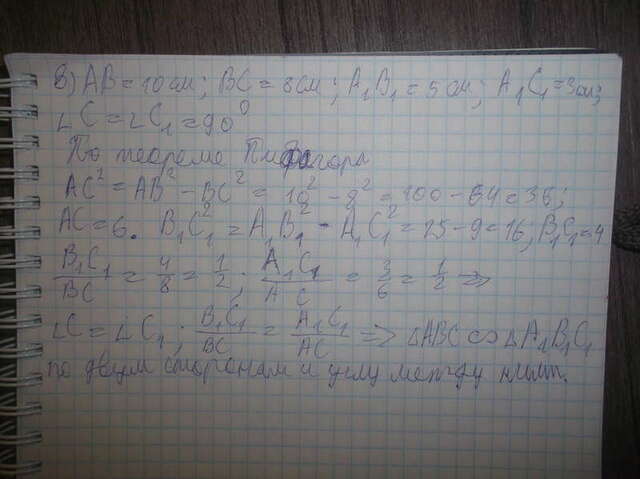 в) AB = 10 см; BC = 8 см; A₁B₁ = 5 см; A₁C₁ = 3 см;
∠C = ∠C₁ = 90°
По теореме Пифагора
AC² = AB² - BC² = 10² - 8² = 100 - 64 = 36;
AC = 6. B₁C₁² = A₁B₁² - A₁C₁² = 25 - 9 = 16; B₁C₁ = 4
B₁C₁/BC = 4/8 = 1/2; A₁C₁/AC = 3/6 = 1/2 =>
∠C = ∠C₁; B₁C₁/BC = A₁C₁/AC => △ABC ∽ △A₁B₁C₁
по двум сторонам и углу между ними.